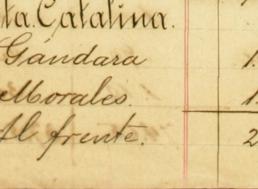 ta. Catalina.
Gándara 1.
Morales. 1.
Al frente. 2